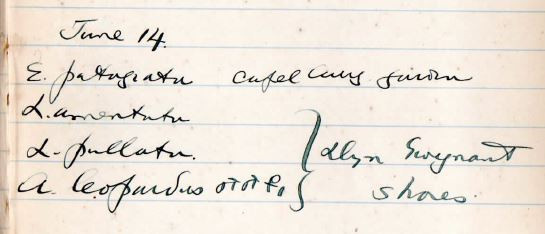 June 14.
E. patagiata Capel Curig garden
L. amentata
L. pullata.
A. leopardus ♂♂♀. } Llyn Gwynant
shores.